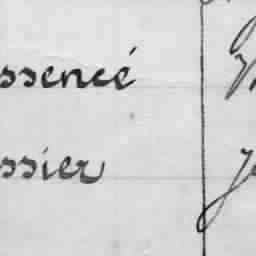 ssencé
ssier